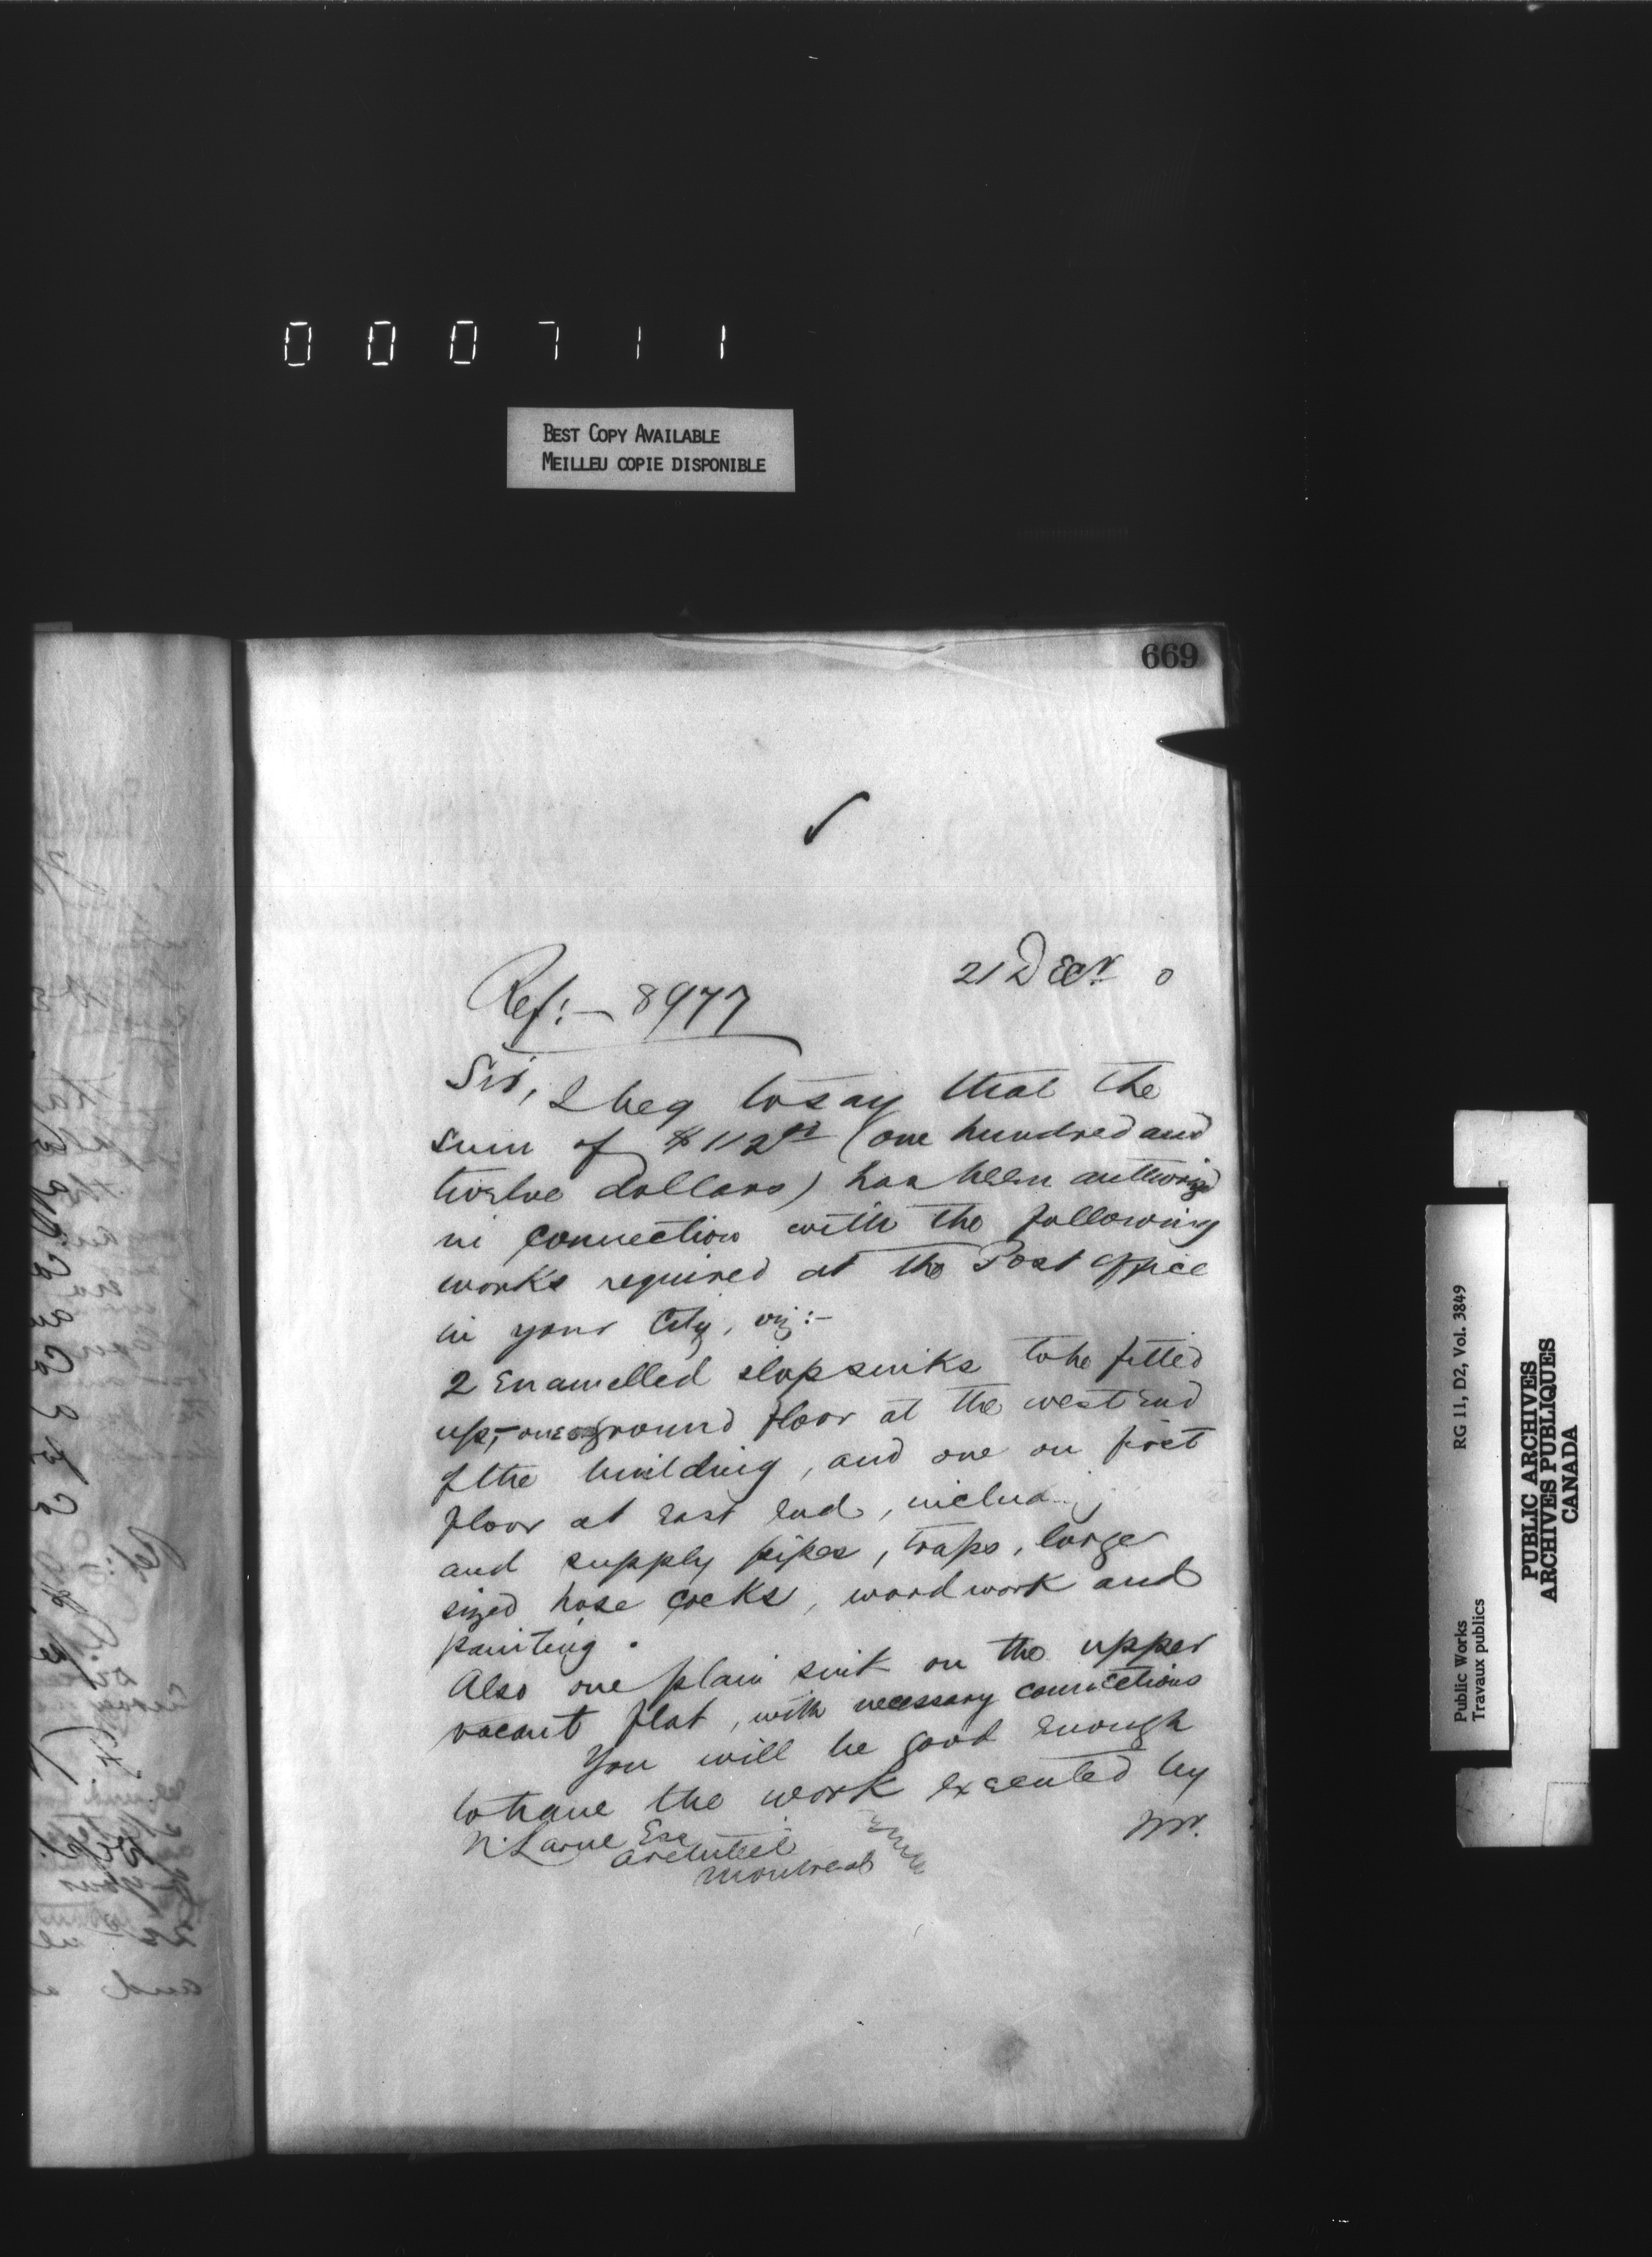 000711
BEST COPY AVAILABLE
MEILLEU COPIE DISPONIBLE
669
21 Decr. 0
Ref:- 8977
Sir,
I beg to say that the
sum of $112 00 (one hundred and
twelve dollars) has been authorized
in connection with the following
works required at the Post office
in your City, viz:-
2 Enamelled slop sinks to be fitted
up,- one ground floor at the west End
of the building, and one on first
floor at East End,
and supply pipes, traps, large
sized hose cocks, woodwork and
painting.
Also one plain sink on the upper
vacant flat, with necessary connections
You will be good enough
to have the work executed by
Mr.
Esq
Architect
Montreal
Public Works
Travaux publics
RG 11, D2, Vol. 3849
PUBLIC ARCHIVES
ARCHIVES PUBLIQUES
CANADA